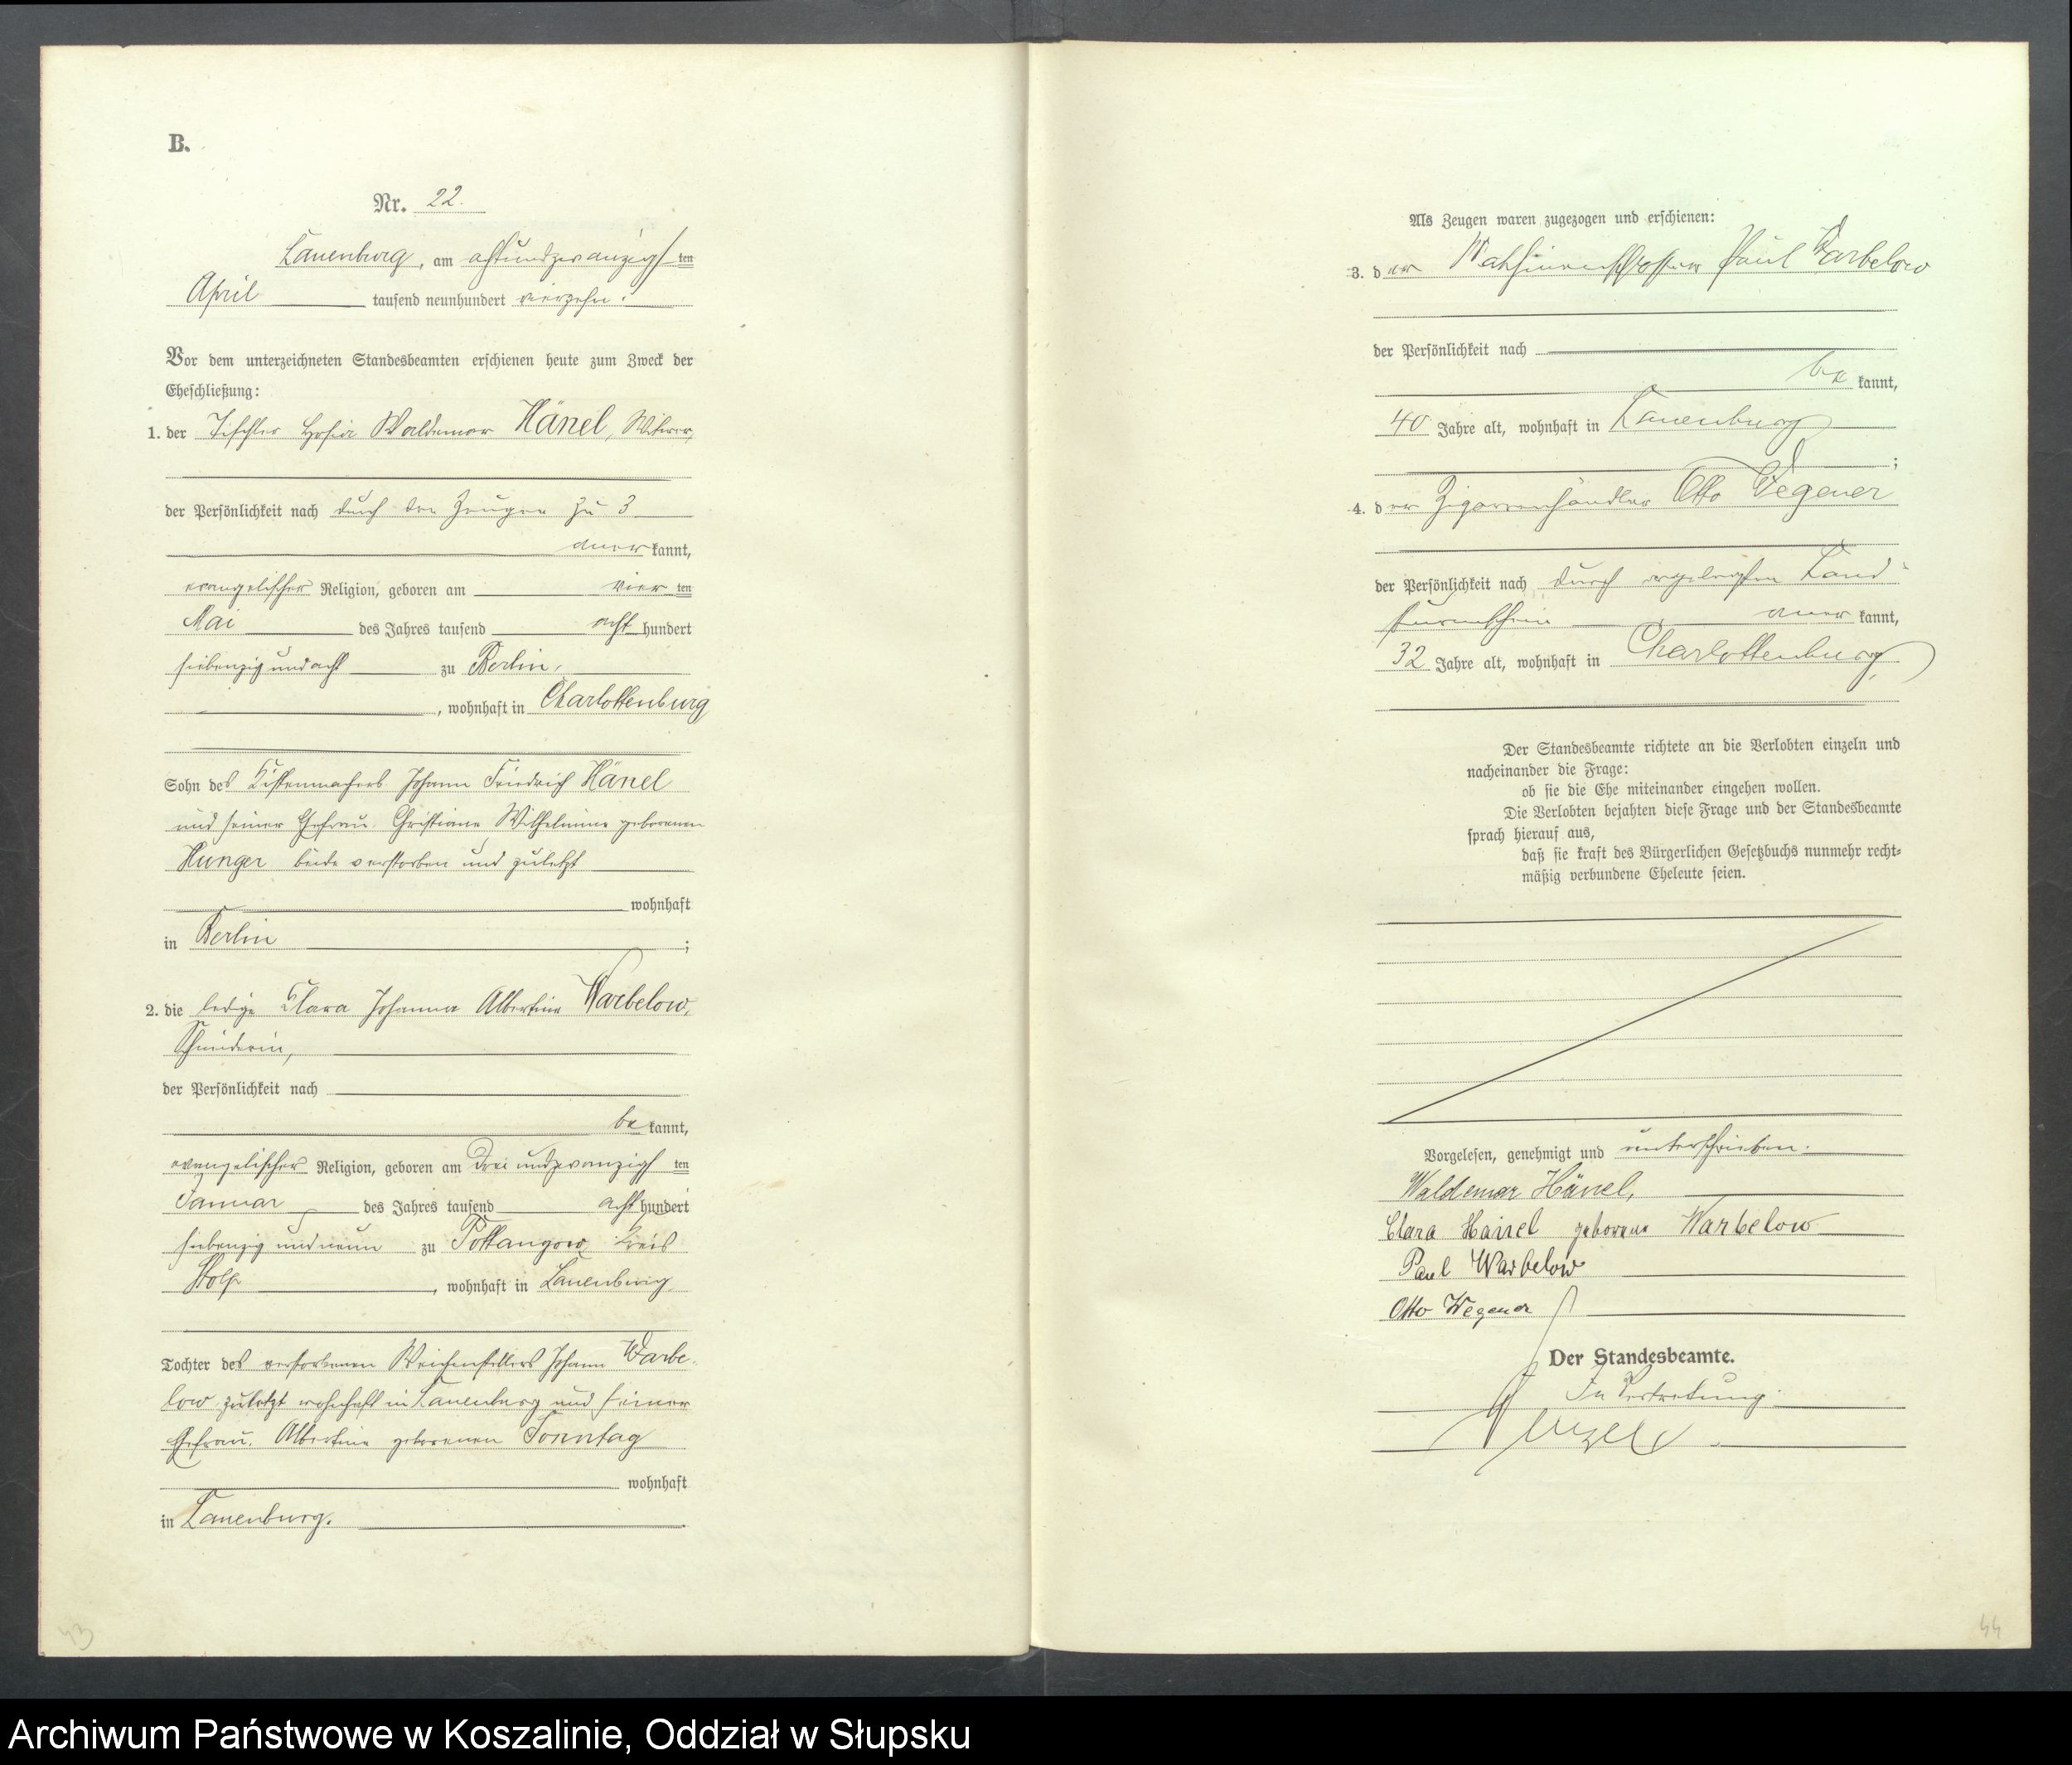 B.
Nr. 22.
Lauenburg, am achtundzwanzigsten
April tausend neunhundert vierzehn.
Vor dem unterzeichneten Standesbeamten erschienen heute zum Zweck der
Eheschließung:
1. der Tischler Waldemar Hänel, Witwer,
der Persönlichkeit nach durch den Zeugen zu 3
anerkannt,
evangelischer Religion, geboren am vierten
Mai des Jahres tausend achthundert
siebenzig und acht zu Berlin,
, wohnhaft in Charlottenburg
Sohn des Kistenmachers Johann Friedrich Hänel
und seiner Ehefrau Christiane Wilhelmine geborenen
Hunger beide verstorben und zuletzt
wohnhaft
in Berlin ;
2. die ledige Clara Johanna Albertine Warbelow,
Schneiderin,
der Persönlichkeit nach
bekannt,
evangelischer Religion, geboren am drei und zwanzigsten
Januar des Jahres tausend achthundert
siebenzig und neun zu Pottangow, Kreis
Stolp , wohnhaft in Lauenburg
Tochter des verstorbenen Weichenstellers Johann Warbe-
low zuletzt wohnhaft in Lauenburg und seiner
Ehefrau Albertine geborenen Sonntag
wohnhaft
in Lauenburg.
43
Als Zeugen waren zugezogen und erschienen:
3. der Maschinenschlosser Paul Warbelow
der Persönlichkeit nach
bekannt,
40 Jahre alt, wohnhaft in Lauenburg
;
4. der Zigarrenhändler Otto Wegener
der Persönlichkeit nach durch vorgelegten Land-
sturmschein anerkannt,
32 Jahre alt, wohnhaft in Charlottenburg,
Der Standesbeamte richtete an die Verlobten einzeln und
nacheinander die Frage:
ob sie die Ehe miteinander eingehen wollen.
Die Verlobten bejahten diese Frage und der Standesbeamte
sprach hierauf aus,
daß sie kraft des Bürgerlichen Gesetzbuchs nunmehr recht-
mäßig verbundene Eheleute seien.
Vorgelesen, genehmigt und unterschrieben.
Waldemar Hänel,
Clara Hänel geborene Warbelow
Paul Warbelow
Otto Wegener
Der Standesbeamte.
In Vertretung.
44
Archiwum Państwowe w Koszalinie, Oddział w Słupsku